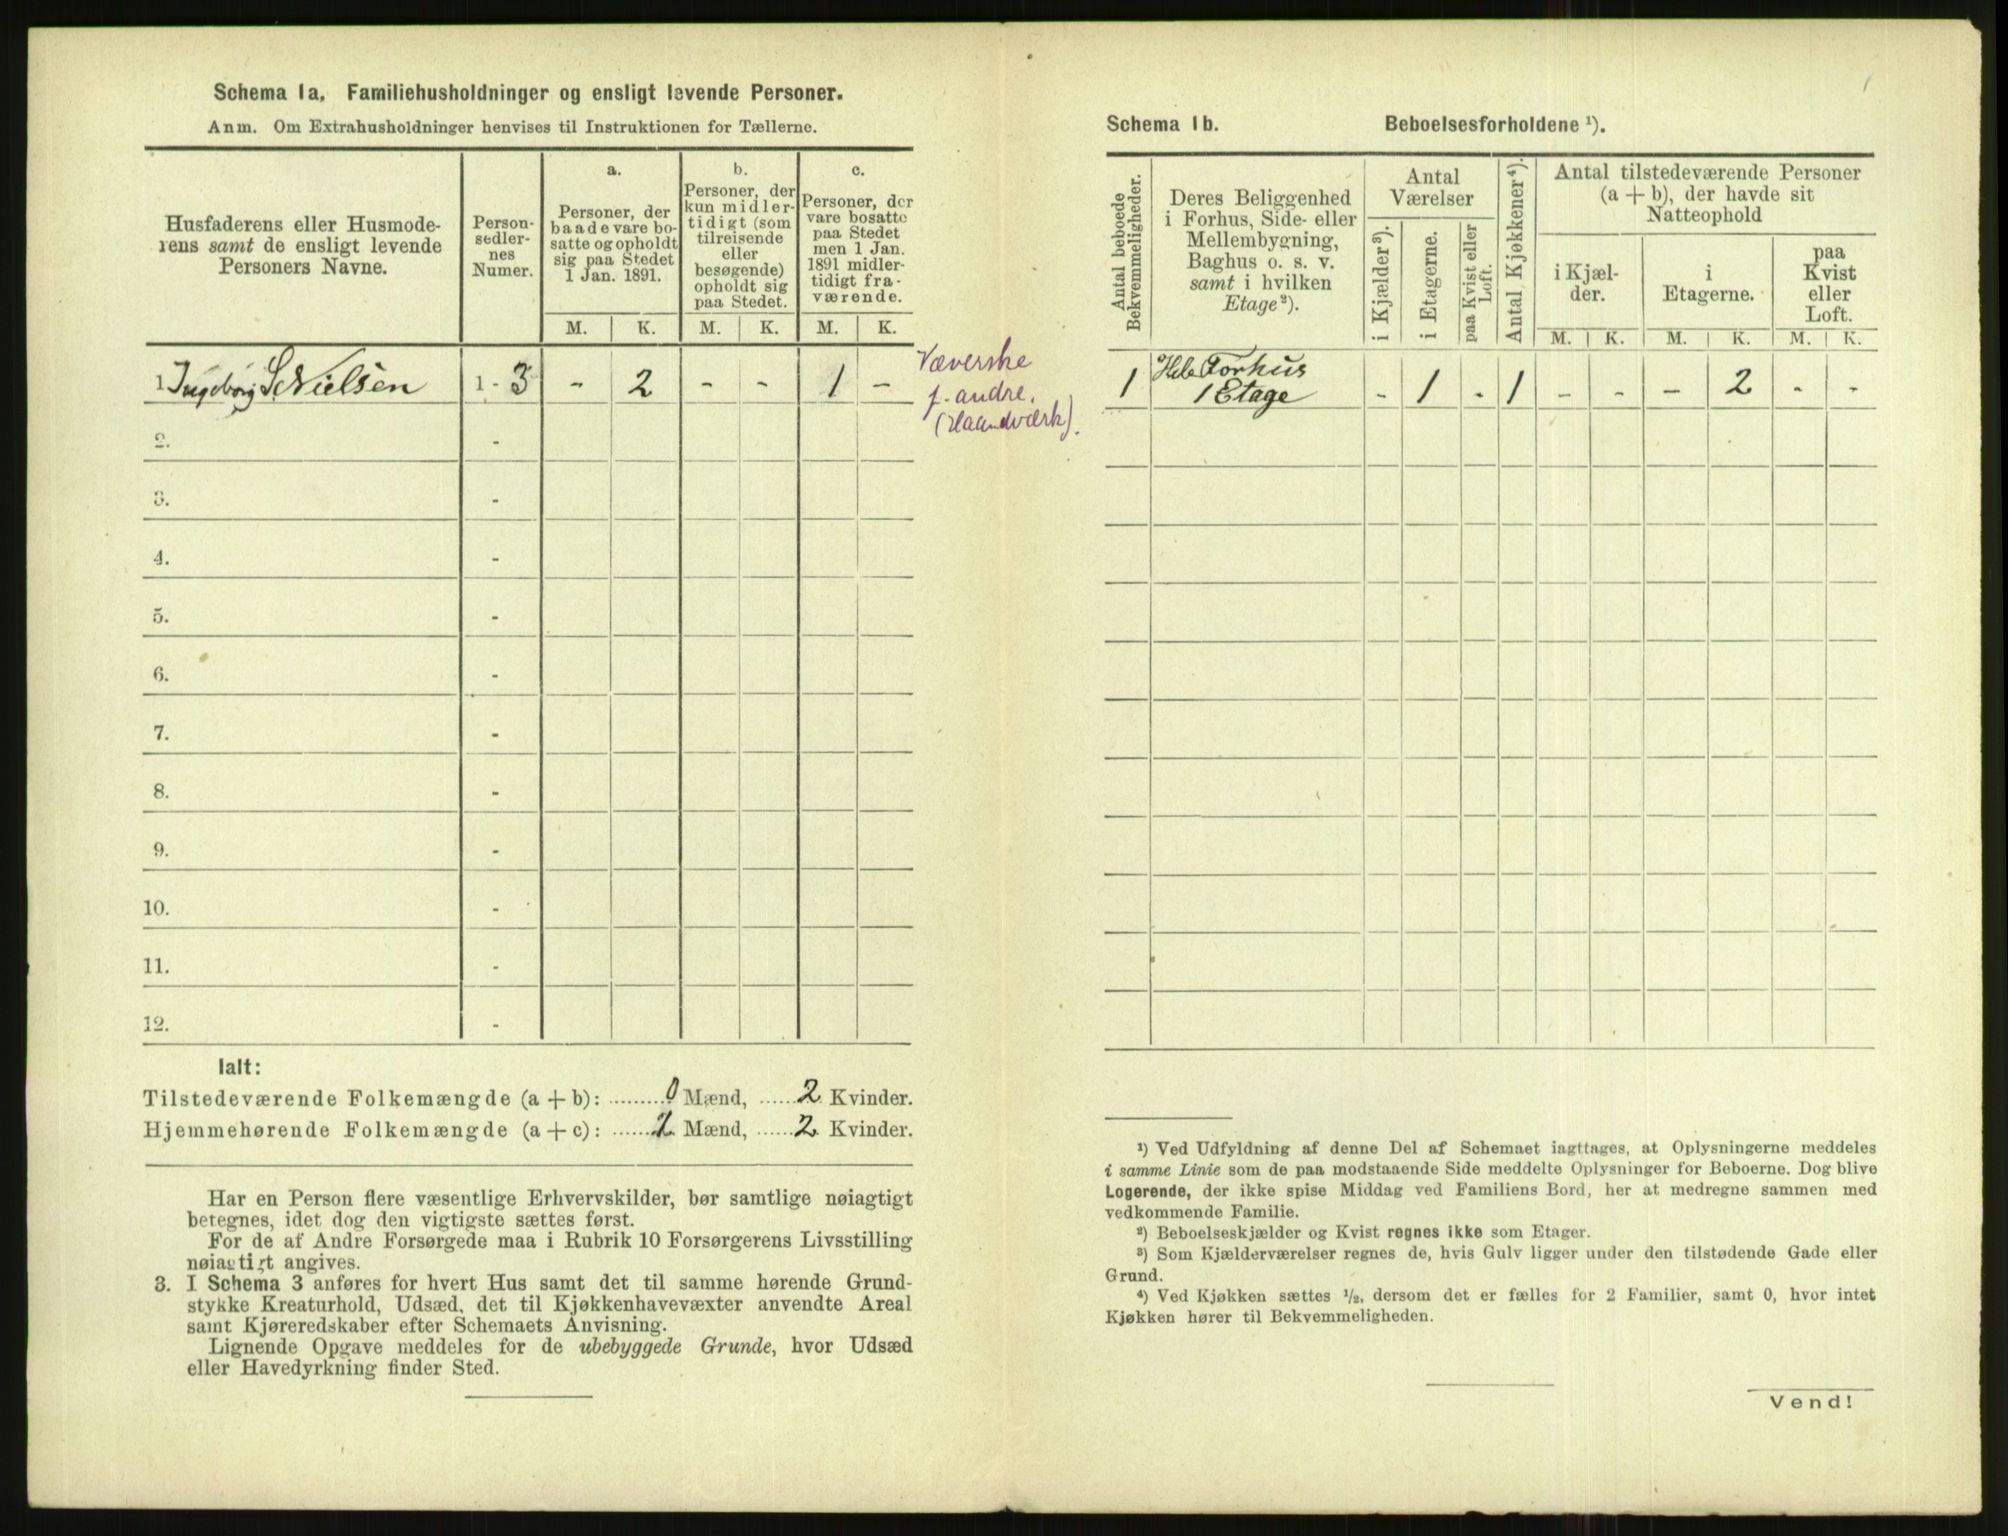 Schema 1a. Familiehusholdninger og ensligt levende Personer.
Anm. Om Extrahusholdninger henvises til Instruktionen for Tællerne.
Husfaderens eller Husmode-
rens samt de ensligt levende
Personers Navne.
Person-
sedler-
nes
Numer.
a.
Personer, der
baade vare bo-
satte og opholdt
sig paa Stedet
1 Jan. 1891.
b.
Personer, der
kun midler-
tidigt (som
tilreisende
eller
besøgende)
opholdt sig
paa Stedet.
c.
Personer, der
vare bosatte
paa Stedet
men 1 Jan.
1891 midler-
tidigt fra-
værende.
M. K. M. K. M. K.
1. Ingeborg S. Nielsen 1 - 3 - 2 - - 1 -
Væverske
f. andre.
(Haandværk).
2. -
3. -
4. -
5. -
6. -
7. -
8. -
9. -
10. -
11. -
12. -
Ialt:
Tilstedeværende Folkemængde (a + b): ......... 0 Mænd, ...... 2 Kvinder.
Hjemmehørende Folkemængde (a + c): ...... 1 Mænd, ...... 2 Kvinder.
Har en Person flere væsentlige Erhvervskilder, bør samtlige nøiagtigt
betegnes, idet dog den vigtigste sættes først.
For de af Andre Forsørgede maa i Rubrik 10 Forsørgerens Livsstilling
nøiagtigt angives.
3. I Schema 3 anføres for hvert Hus samt det til samme hørende Grund-
stykke Kreaturhold, Udsæd, det til Kjøkkenhavevæxter anvendte Areal
samt Kjøreredskaber efter Schemaets Anvisning.
Lignende Opgave meddeles for de ubebyggede Grunde, hvor Udsæd
eller Havedyrkning finder Sted.
Schema 1b. Beboelsesforholdene ¹).
Antal beboede
Bekvemmeligheder.
Deres Beliggenhed
i Forhus, Side- eller
Mellembygning,
Baghus o. s. v.
samt i hvilken
Etage²).
Antal
Værelser
i Kjælder³).
i Etagerne.
paa Kvist eller
Loft.
Antal Kjøkkener⁴).
Antal tilstedeværende Personer
(a + b), der havde sit
Natteophold
i Kjæl-
der.
i
Etagerne.
paa
Kvist
eller
Loft.
M. K. M. K. M. K.
1 Hele Forhus
1 Etage - 1 - 1 - - - 2 - -
¹) Ved Udfyldning af denne Del af Schemaet iagttages, at Oplysningerne meddeles
i samme Linie som de paa modstaaende Side meddelte Oplysninger for Beboerne. Dog blive
Logerende, der ikke spise Middag ved Familiens Bord, her at medregne sammen med
vedkommende Familie.
²) Beboelseskjælder og Kvist regnes ikke som Etager.
³) Som Kjælderværelser regnes de, hvis Gulv ligger under den tilstødende Gade eller
Grund.
⁴) Ved Kjøkken sættes ½, dersom det er fælles for 2 Familier, samt 0, hvor intet
Kjøkken hører til Bekvemmeligheden.
Vend!